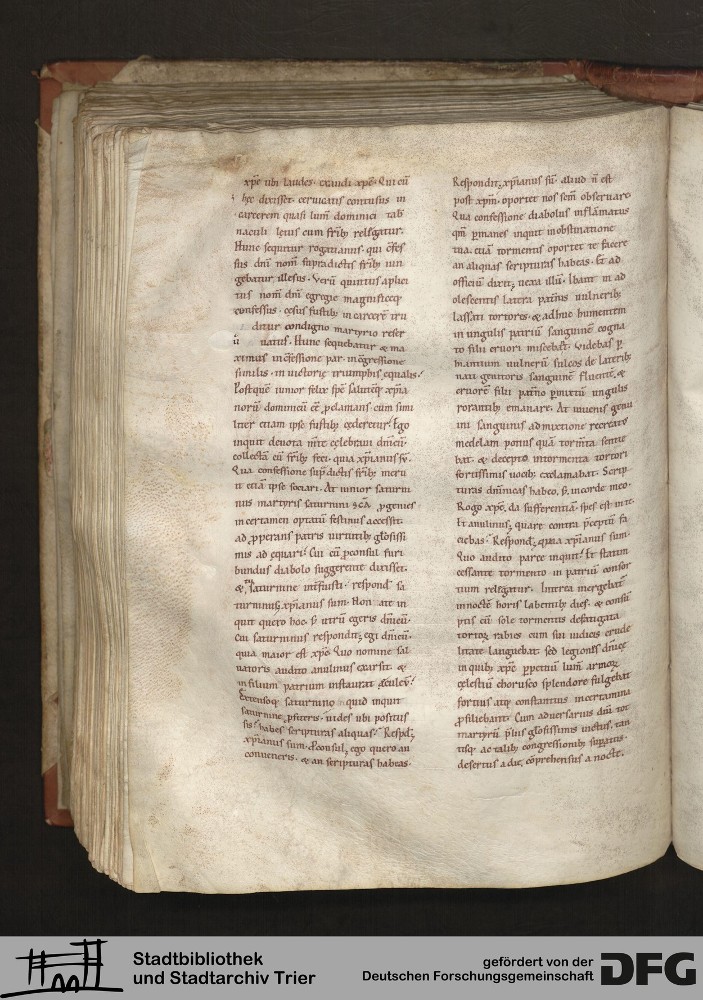 xp̄e ubi laudes. exaudi xp̄e. Qui cū
hec dixisset. ceruicans contusus in
carcerem quasi lum̄ dominici tab̄
naculi letus cum frīb; relegatur.
Hunc sequitur rogatianus. qui cōfes
sus dn̄i nom̄ supradictis frīb; iun
gebatur illesus. Verū quintus aplici
tus nom̄ dn̄i egregie magnificeq;
confessus. cesus fustib; in carcerē tru
ditur condigno martyrio reser
uatus. Hunc sequebatur & ma
ximus in cōfessione par. in cōgressione
similis. in uictorię triumphis equalis.
Post quē iunior felix spē salutēq; xp̄ia
norū dominicū eē p̄clamans. cum simi
liter etiam ipse fustib; cederetur. Ego
inquit deuota m̄te celebraui dn̄icū.
collectā cū frīb; feci. quia xp̄ianus sū.
Qua confessione sup̄dictis frīb; meru
it etiā ipse sociari. At iunior saturni
nus martyris saturnini scā p̄genies
in certamen optatū festinus accessit.
ad p̄perans patris uirtutib; gl̄osissi
mis adequari. Cui cū p̄consul furi
bundus diabolo suggerente dixisset.
& tu saturnine int̄fuisti. respond̄ sa
turninus. xp̄ianus sum. Non a te in
quit quero hoc. s; utrū egeris dn̄icū.
Cui saturninus respondit; egi dn̄icū.
quia maior est xp̄c. Quo nomine sal
uatoris audito anulinus exarsit. &
in filium patrium instaurat eculeū.
Extensoq; saturnino. quid inquit
saturnine p̄fiteris. uides ubi positus
sis. habes scripturas aliquas. Respd;
xp̄ianus sum. P̄consul, ego quero an
conueneris. & an scripturas habeas.
Respondit; xp̄ianus sū. aliud n̄ est
post xp̄m. oportet nos sem̄ obseruare.
Qua confessione diabolus inflāmatus
qm̄ p̄manes inquit in obstinatione
tua. etiā tormentis oportet te facere
an aliquas scripturas habeas. Et ad
officiū dixit; uexa illū. Ibant in ad
olescentis latera patinis uulnerib;
lassati tortores. & adhuc humentem
in ungulis patriū sanguinē cogna
to filii cruori miscebāt. Videbas p̄
hiantium uulnerū sulcos de laterib;
nati genitoris sanguinē fluentē. &
cruorē filii patn̄o p̄mixtū ungulis
rorantib; emanare. At iuuenis genu
ini sanguinis admixtione recreatus
medelam potius quā torm̄ta sentie
bat. & decepto in tormenta tortori
fortissimis uocib; exclamabat. Scrip
turas dn̄nicas habeo. s; in corde meo.
Rogo xp̄e, da sufferentiā. spes est in te.
Et anulinus; quare contra p̄ceptū fa
ciebas. Respond; quia xp̄ianus sum.
Quo audito parce inquit. Et statim
cessante tormento in patriū consor
tium relegatur. Interea mergebatur
in noctē horis labentib; dies. & consū
ptis cū sole tormentis defatigata
tortor; rabies cum sui iudicis crude
litate languebat. sed legiones dn̄icę
in quib; xp̄c perpetuū lum̄ armor;
celestiū chorusco splendore fulgebat
fortius atq; constantius in certamina
p̄siliebant. Cum aduersarius dn̄i tot
martyrū p̄liis gl̄osissimis uictus. tan
tisq; ac talib; congressionib; supatus.
desertus a die, cōprehensus a nocte.
Stadtbibliothek
und Stadtarchiv Trier
gefördert von der
Deutschen Forschungsgemeinschaft
DFG